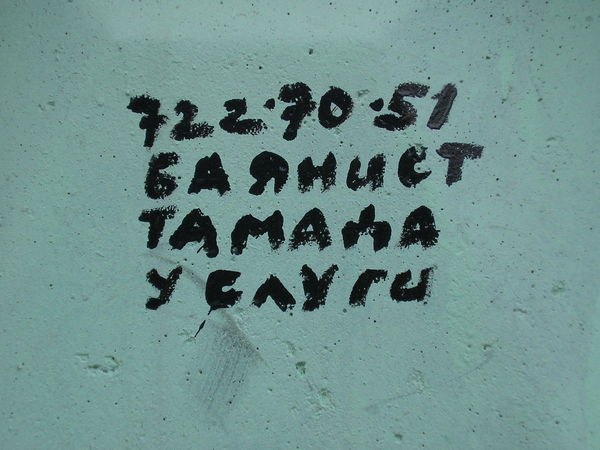 722·70·51
БАЯНИСТ
ТАМАДА
УСЛУГИ